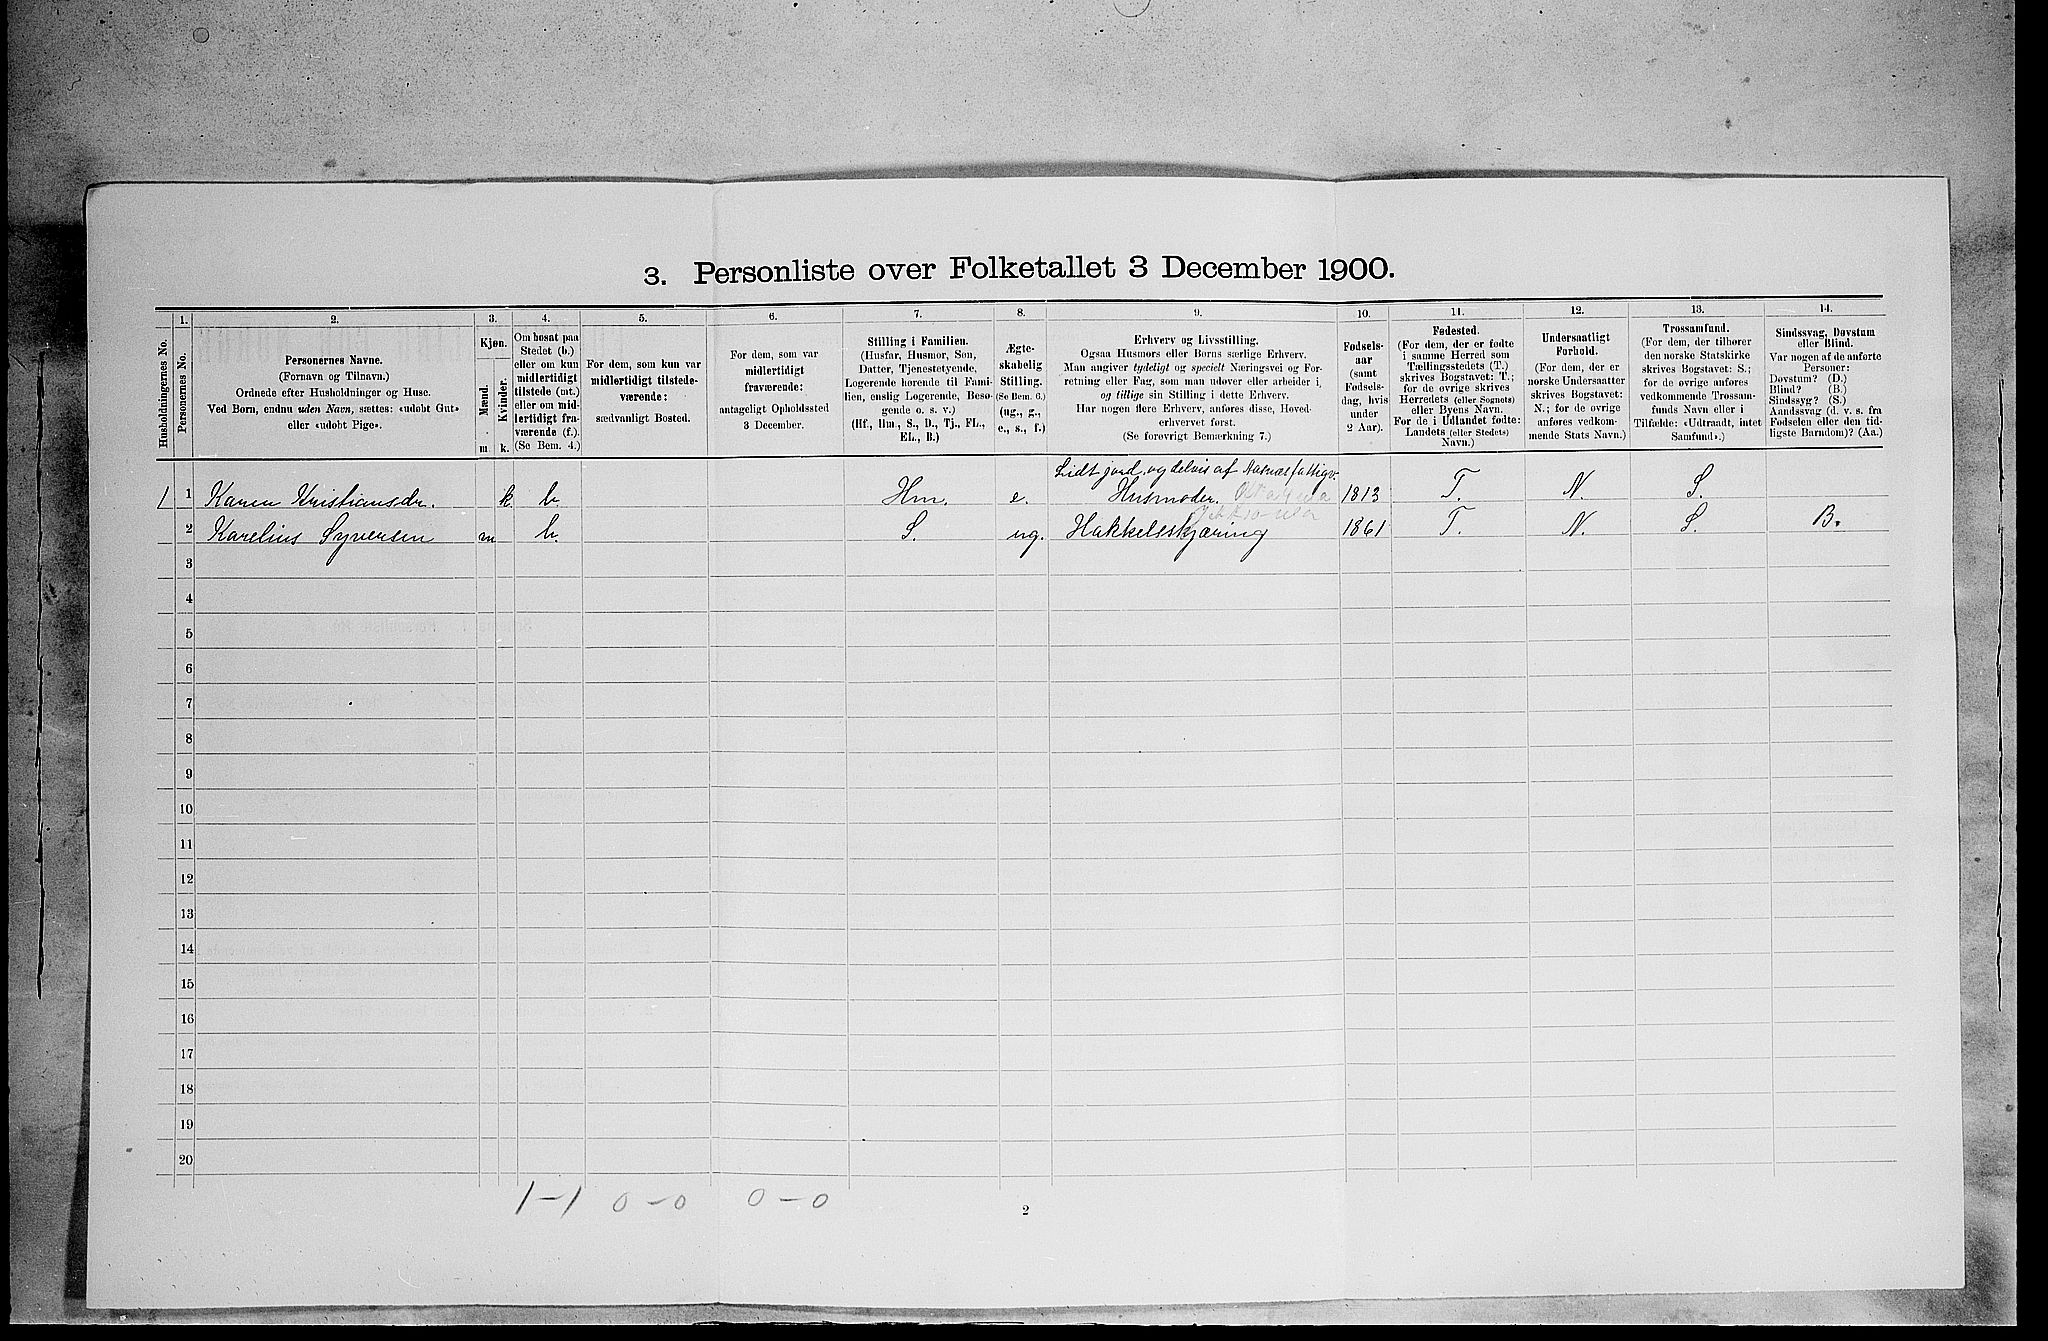 3. Personliste over Folketallet 3 December 1900.
Husholdningernes No.
1.
Personernes No.
2.
Personernes Navne.
(Fornavn og Tilnavn.)
Ordnede efter Husholdninger og Huse.
Ved Børn, endnu uden Navn, sættes: «udøbt Gut»
eller «udøbt Pige».
3.
Kjøn.
Mænd.
Kvinder.
m.
k.
4.
Om bosat paa
Stedet (b.)
eller om kun
midlertidigt
tilstede (mt.)
eller om mid-
lertidigt fra-
værende (f.)
(Se Bem. 4.)
5.
For dem, som kun var
midlertidigt tilstede-
værende:
sædvanligt Bosted.
6.
For dem, som var
midlertidigt
fraværende:
antageligt Opholdssted
3 December.
7.
Stilling i Familien.
(Husfar, Husmor, Søn,
Datter, Tjenestetyende,
Logerende hørende til Fami-
lien, enslig Logerende, Besø-
gende o. s. v.)
(Hf., Hm., S., D., Tj., FL.,
EL., B.)
8.
Ægte-
skabelig
Stilling.
(Se Bem. 6.)
(ug., g.,
e., s., f.)
9.
Erhverv og Livsstilling.
Ogsaa Husmors eller Børns særlige Erhverv.
Man angiver tydeligt og specielt Næringsvei og For-
retning eller Fag, som man udøver eller arbeider i,
og tillige sin Stilling i dette Erhverv.
Har nogen flere Erhverv, anføres disse, Hoved-
erhvervet først.
(Se forøvrigt Bemærkning 7.)
10.
Fødsels-
aar
(samt
Fødsels-
dag, hvis
under
2 Aar).
11.
Fødested.
(For dem, der er fødte
i samme Herred som
Tællingsstedets (T.)
skrives Bogstavet: T.;
for de øvrige skrives
Herredets (eller Sognets)
eller Byens Navn.
For de i Udlandet fødte:
Landets (eller Stedets)
Navn.)
12.
Undersaatligt
Forhold.
(For dem, der er
norske Undersaatter
skrives Bogstavet:
N.; for de øvrige
anføres vedkom-
mende Stats Navn.)
13.
Trossamfund.
(For dem, der tilhører
den norske Statskirke
skrives Bogstavet: S.;
for de øvrige anføres
vedkommende Trossam-
funds Navn eller i
Tilfælde: «Udtraadt, intet
Samfund».)
14.
Sindssvag, Døvstum
eller Blind.
Var nogen af de anførte
Personer:
Døvstum? (D.)
Blind? (B.)
Sindssyg? (S.)
Aandssvag (d. v. s. fra
Fødselen eller den tid-
ligste Barndom)? (Aa.)
Lidt jord, og delvis af fattigv.
1 1 Karen Kristiansdr. k. b. Hm. e. Husmoder. 1813 T. N. S.
2 Karelius Syversen m b. S. ug. Hakkelsskjæring 1861 T. N. S. B.
3
4
5
6
7
8
9
10
11
12
13
14
15
16
17
18
19
20
1-1 0-0 0-0
2